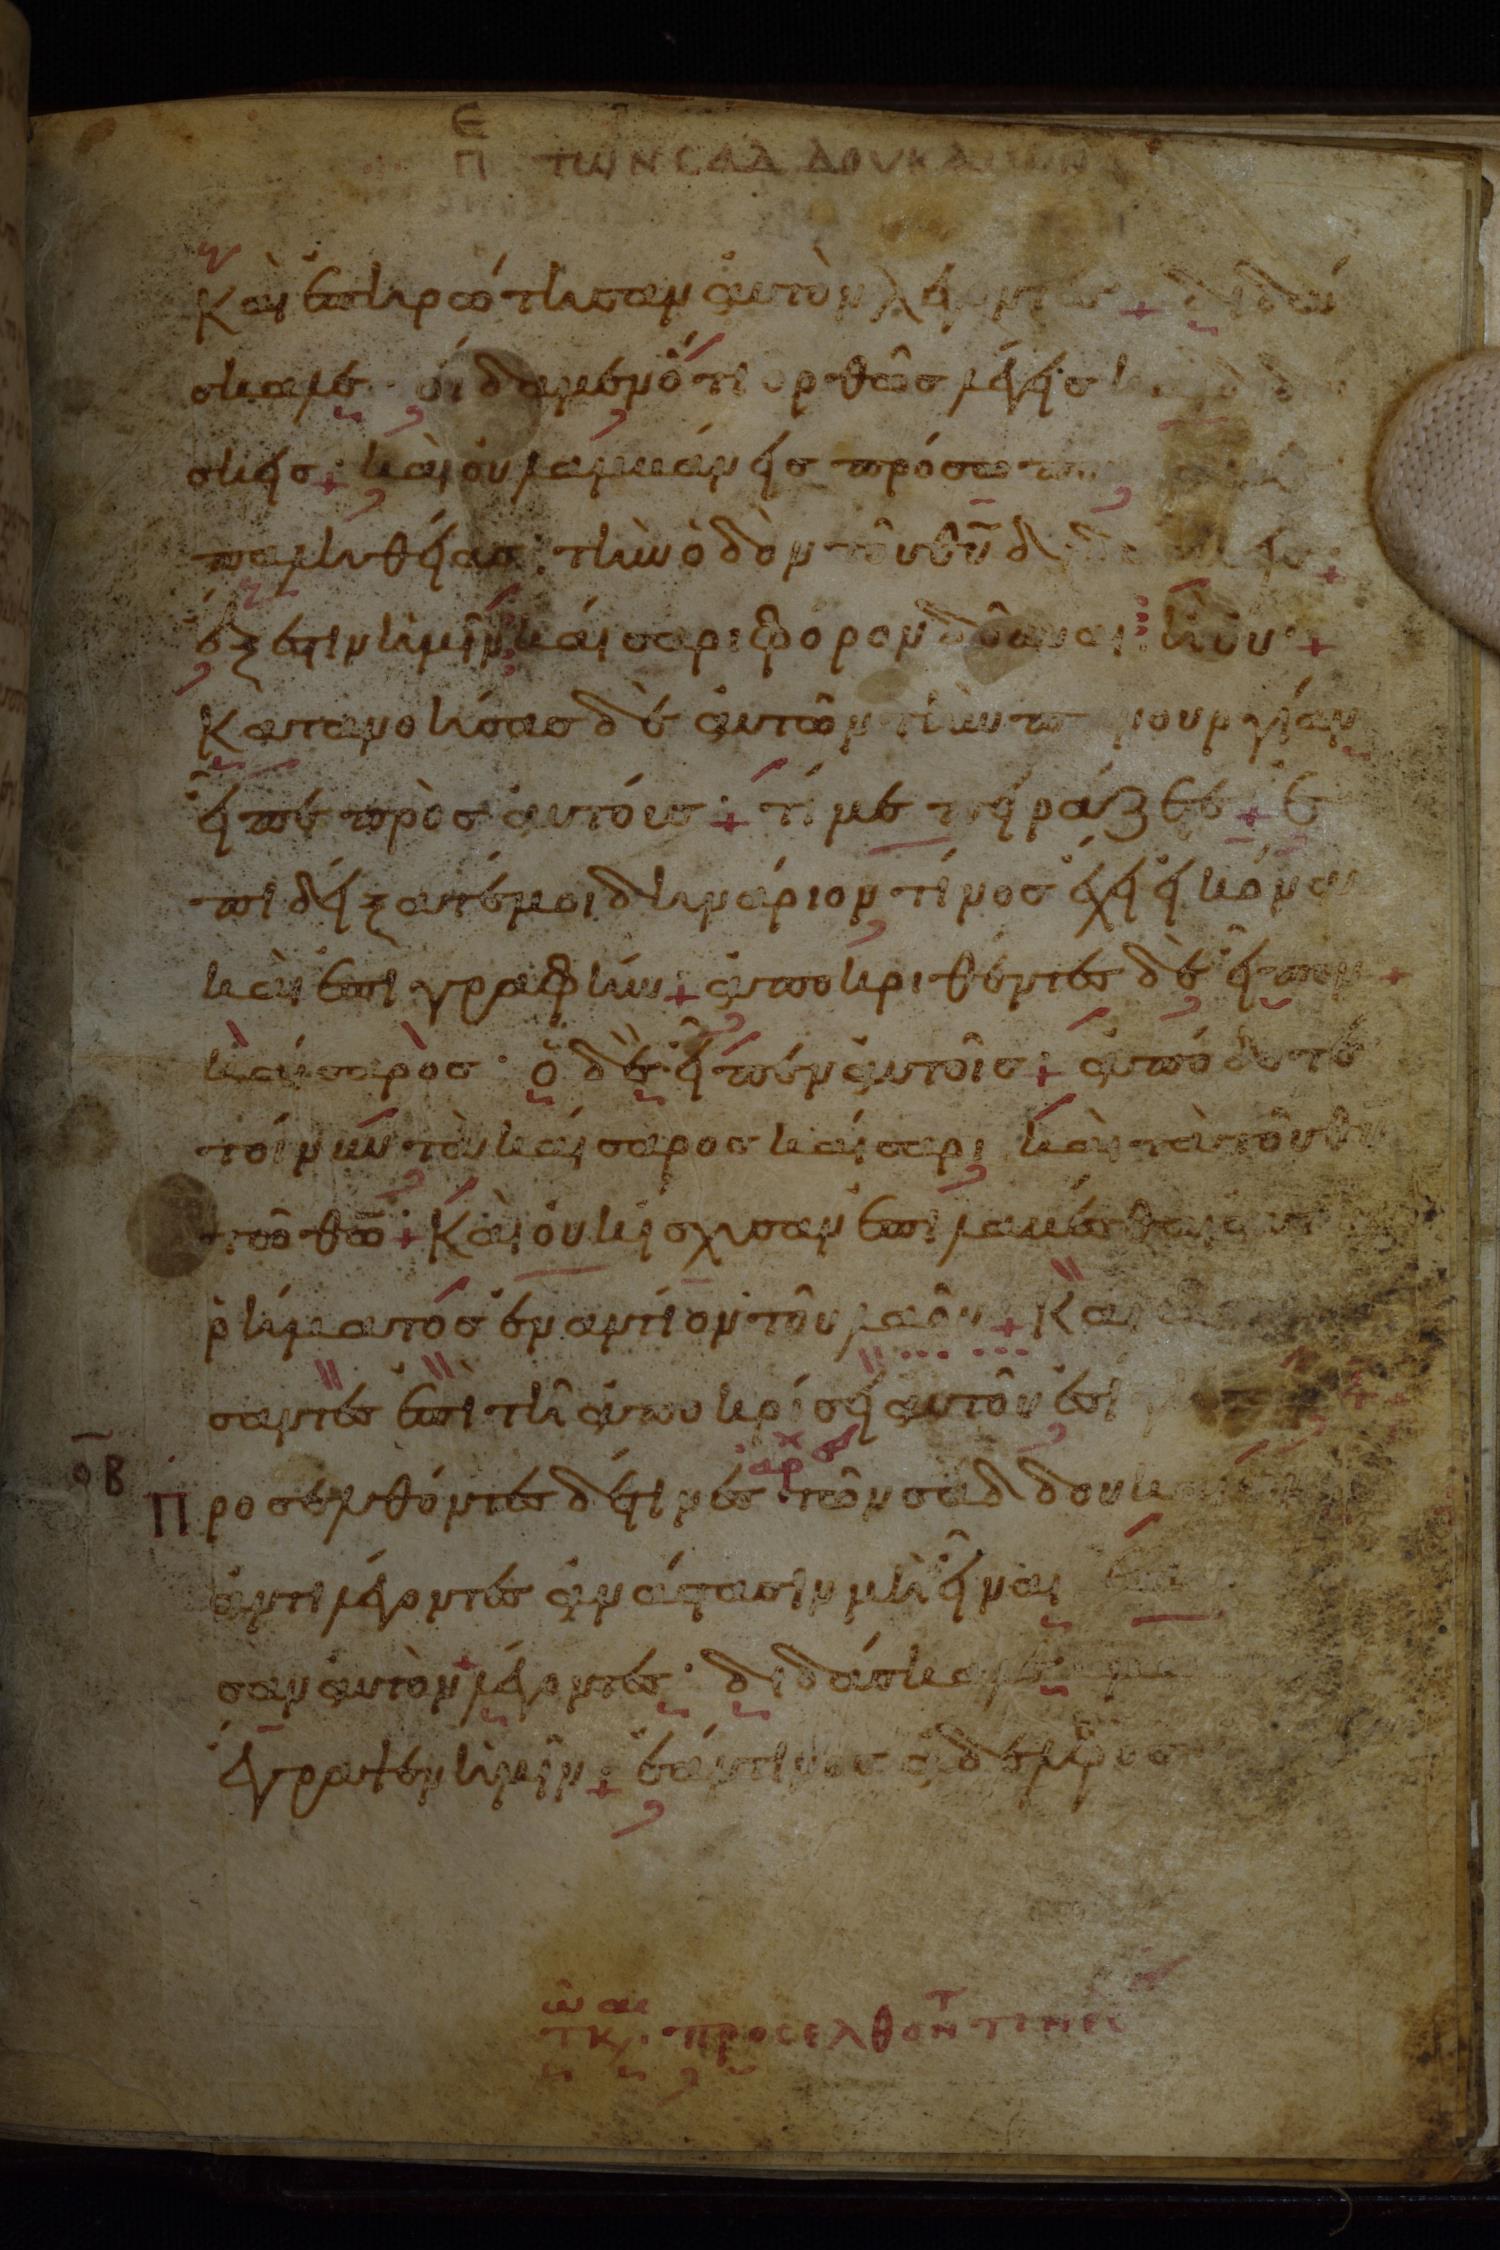 Πε ΤΩΝ ΣΑΔΔΟΥΚΑΙΩΝ
Καὶ ἐπηρώτησαν αὐτὸν λέγοντες + διδά
σκαλε · οἴδαμεν ὅτι ὀρθῶς λέγεις καὶ διδά
σκεις + καὶ οὐ λαμβάνεις πρόσωπον
ἀληθείας · τὴν ὁδὸν τοῦ θῦ διδάσκεις +
ἔξεστιν ἡμῖν καίσαρι φόρον δοῦναι ἢ οὔ · +
Κατανοήσας δὲ αὐτῶν τὴν πανουργίαν
εἶπε πρὸς αὐτούς + τί με πειράζετε + ἐ
πιδείξατέ μοι δηνάριον τίνος ἔχει εἰκόνα
καὶ ἐπιγραφήν + ἀποκριθέντες δὲ εἶπον +
καίσαρος · ὁ δὲ εἶπεν αὐτοῖς + ἀπόδοτε
τοίνυν τὰ καίσαρος καίσαρι καὶ τὰ τοῦ θῦ
τῶ θῶ + Καὶ οὐκ ἴσχυσαν ἐπιλαβέσθαι αὐτοῦ
ῥήματος ἐναντίον τοῦ λαοῦ + Καὶ
σαντες ἐπὶ τῆ ἀποκρίσει αὐτοῦ ἐσί
οβ Προσελθόντες δέ τινες τῶν σαδδουκαίων
ἀντιλέγοντες ἀνάστασιν μὴ εἶναι
σαν αὐτὸν λέγοντες · διδάσκαλε
ἔγραψεν ἡμῖν + ἐάν τινος ἀδελφὸς
τω και προσελθοντ τινες